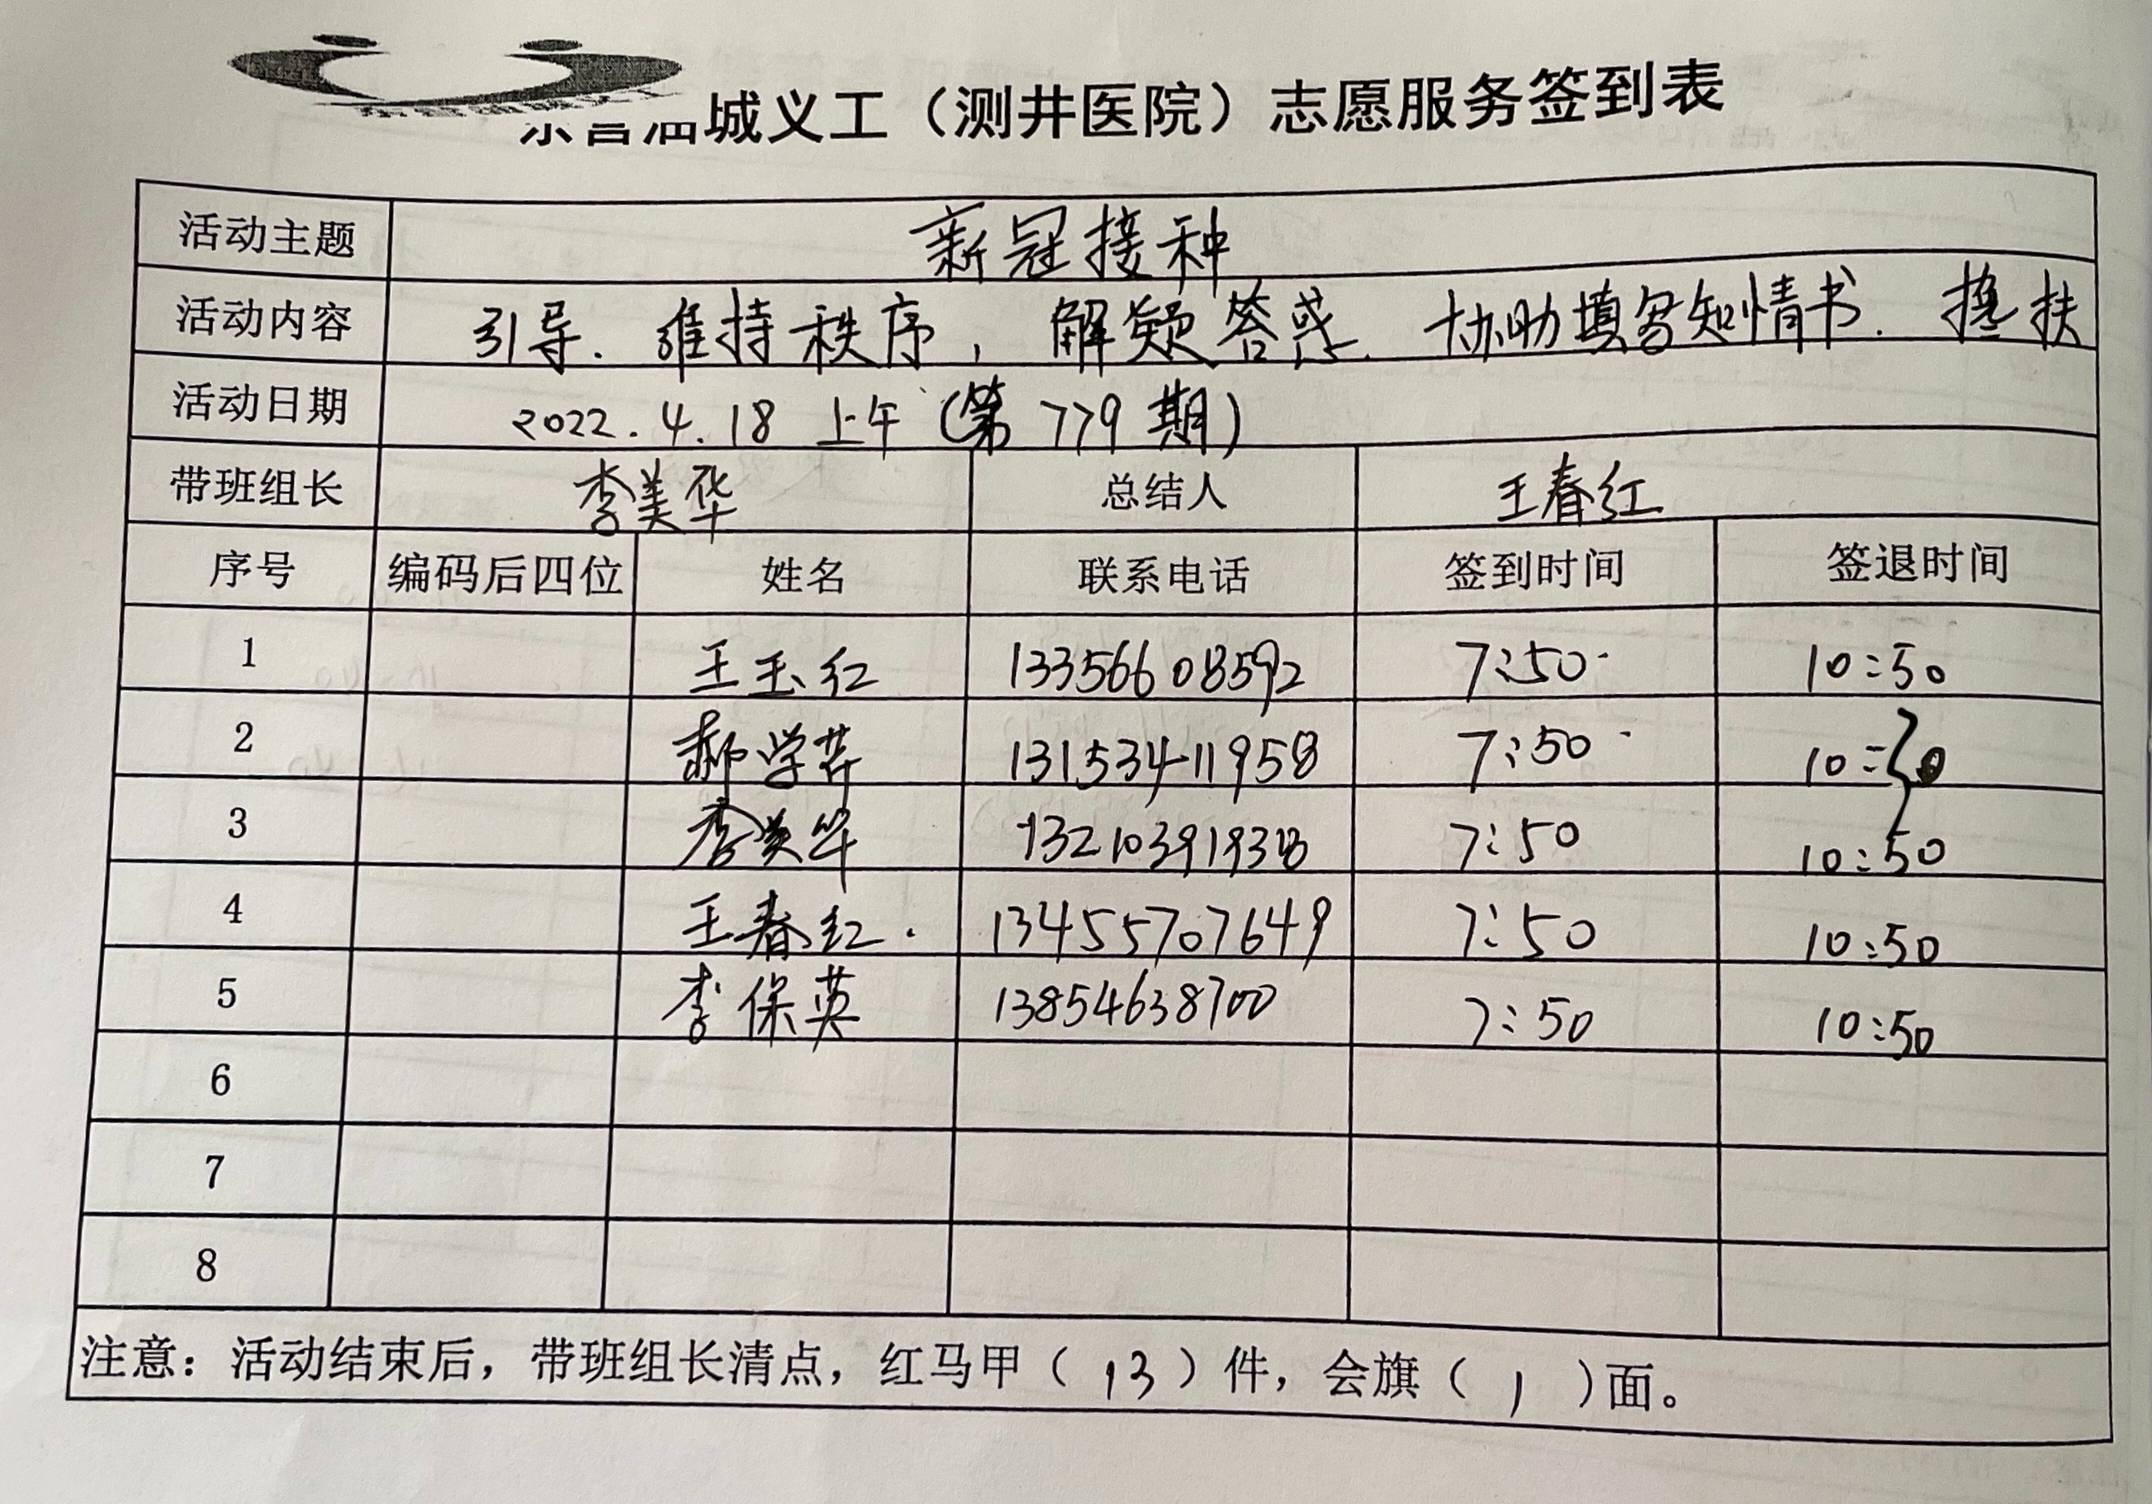 东营油城义工（测井医院）志愿服务签到表
活动主题 新冠接种
活动内容 引导. 维持秩序, 解疑答惑. 协助填写知情书. 搀扶
活动日期 2022.4.18 上午 (第779期)
带班组长 李美华 总结人 王春红
序号 编码后四位 姓名 联系电话 签到时间 签退时间
1 王玉红 13356608592 7:50 10:50
2 郝学芹 13153411958 7:50 10:50
3 李美华 13210391938 7:50 10:50
4 王春红 13455707649 7:50 10:50
5 李保英 13854638700 7:50 10:50
6
7
8
注意：活动结束后，带班组长清点，红马甲（13）件，会旗（1）面。